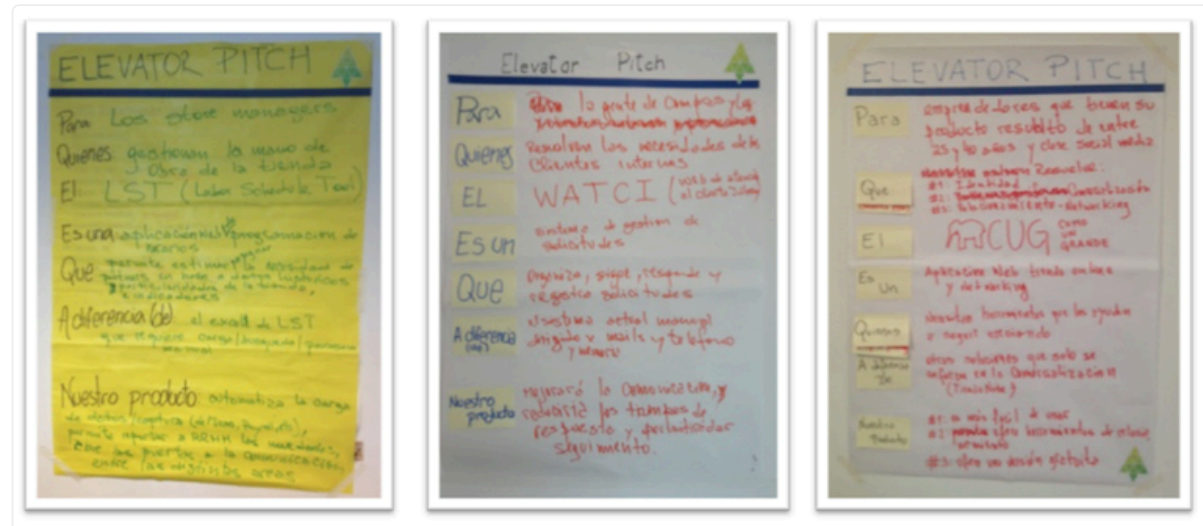 ELEVATOR PITCH
Para Los store managers
Quienes gestionan la mano de
obra de la tienda
El LST (Labor Schedule Tool)
Es una aplicación web programación de
horarios
Que permite estimar la necesidad de
en base a datos históricos
de la tienda,
e indicadores
A diferencia (de) el excell de LST
que requiere carga/busqueda/
manual
Nuestro producto: automatiza la carga
de datos
permite reportar a RRHH las novedades,
abre las puertas a la comunicación
entre las distintas areas
Elevator Pitch
Para la gente de Compras y Log.
Quienes Resuelven las necesidades de los
Clientes internos
EL WATCI (
al cliente interno)
Es un sistema de gestion de
solicitudes
Que Organiza, sigue, responde y
registra solicitudes
A diferencia (de) el sistema actual manual
x mails y telefono
Nuestro producto mejorará la comunicación, y
reducirá los tiempos de
respuesta y
seguimiento.
ELEVATOR PITCH
Para emprendedores que tienen su
producto resuelto de entre
25 y 40 años y clase social media
Que Resuelve:
#1: Identidad
#2: Comercialización
#3: Networking
El CUG COMO UN GRANDE
Es Un Aplicacion Web tienda on line
y Networking
Quienes Necesitan herramientas que los ayuden
a seguir creciendo
A diferencia De otras soluciones que solo se
enfocan en la Comercialización
(TiendaNube)
Nuestro Producto #1: es más facil de usar
#2: ofrece herramientas de
#3: ofrece una versión gratuita